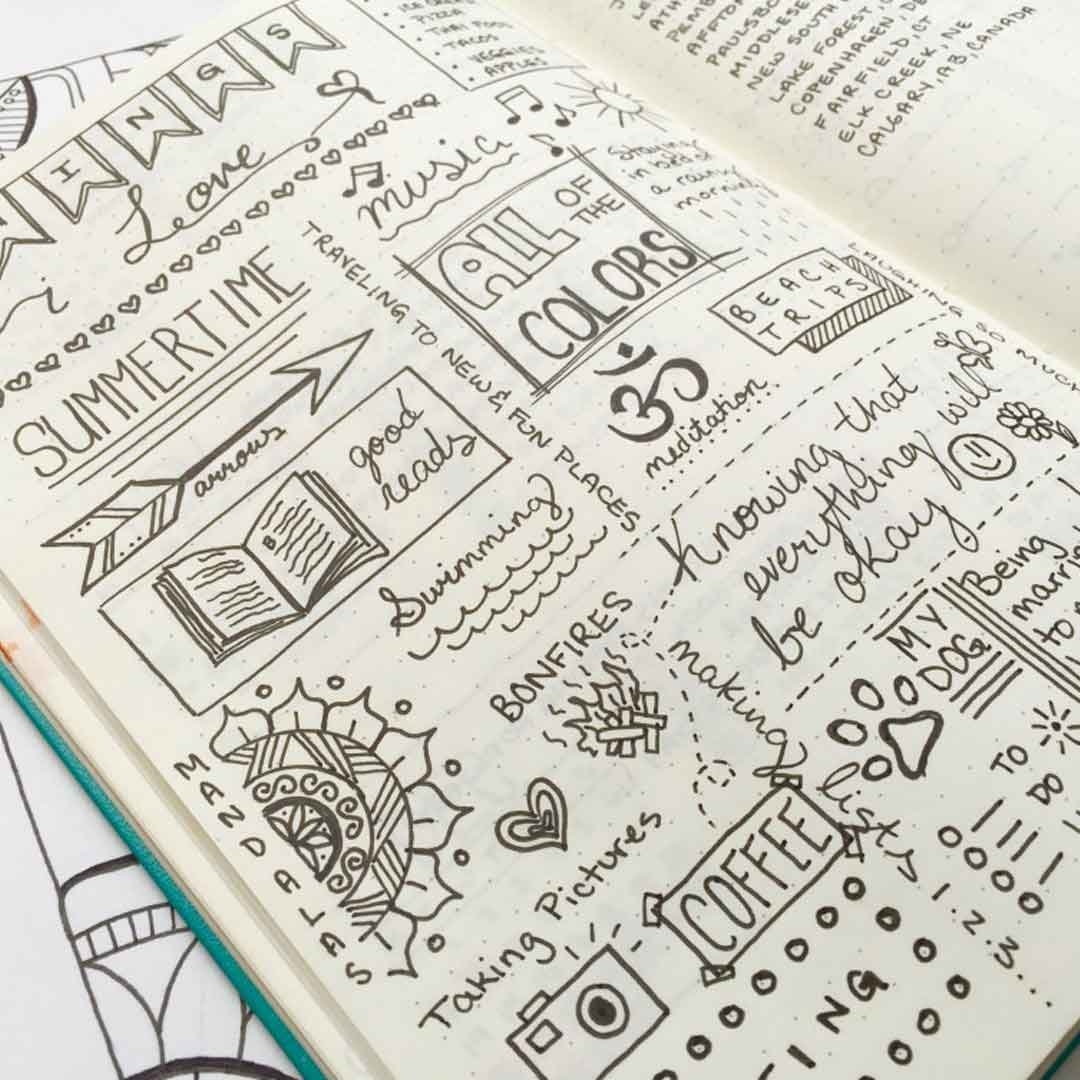 INGS
i Love
ICE CREAM
PIZZA
THAI FOOD
TACOS
VEGGIES
APPLES
music
Staying
in bed on
a rainy
morning
ALL OF
THE
COLORS
SUMMERTIME
TRAVELING TO NEW & FUN PLACES
BEACH
TRIPS
LAUGHING SO MUCH
arrows
good
reads
ॐ
meditation
Swimming
Knowing that
everything will
be okay
BONFIRES
making
lists
MY
DOG
Being
to
TO
DO
1.2.3...
MANDALAS
Taking Pictures
COFFEE
ING
MIDDLESE
NEW SOUTH
LAKE FOREST,
COPENHAGEN, DE
FAIRFIELD, CT
ELK CREEK, NE
CALGARY, AB, CANADA